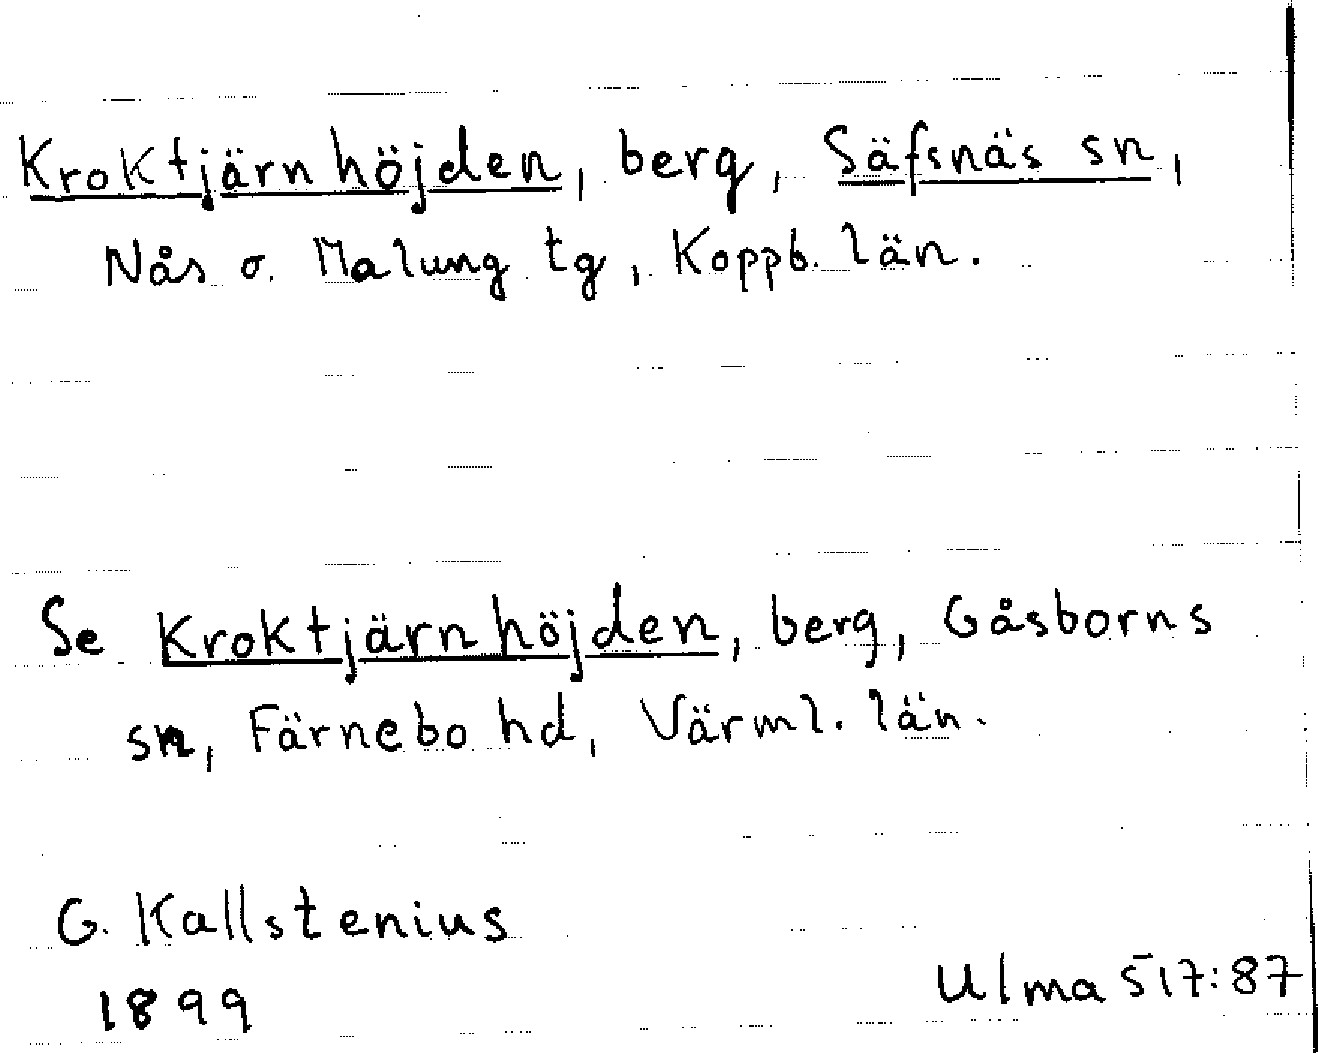 Kroktjärnhöjden, berg, Säfsnäs sn,
Nås o. Malung tg, Koppb. län.
Se Kroktjärnhöjden, berg, Gåsborns
sn, Färnebo hd, Värml. län.
G. Kallstenius
1899
Ulma 517:87